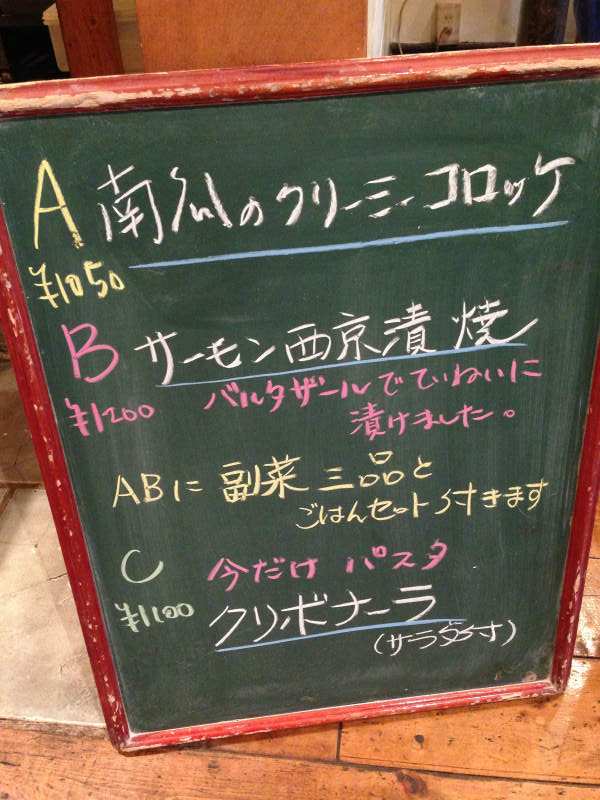 A 南瓜のクリーミーコロッケ
¥1050
B サーモン西京漬焼
¥1200 バルタザールでていねいに
漬けました。
ABに 副菜 三品と
ごはんセット付きます
C 今だけ パスタ
¥1100 クリボナーラ
(サラダ付)